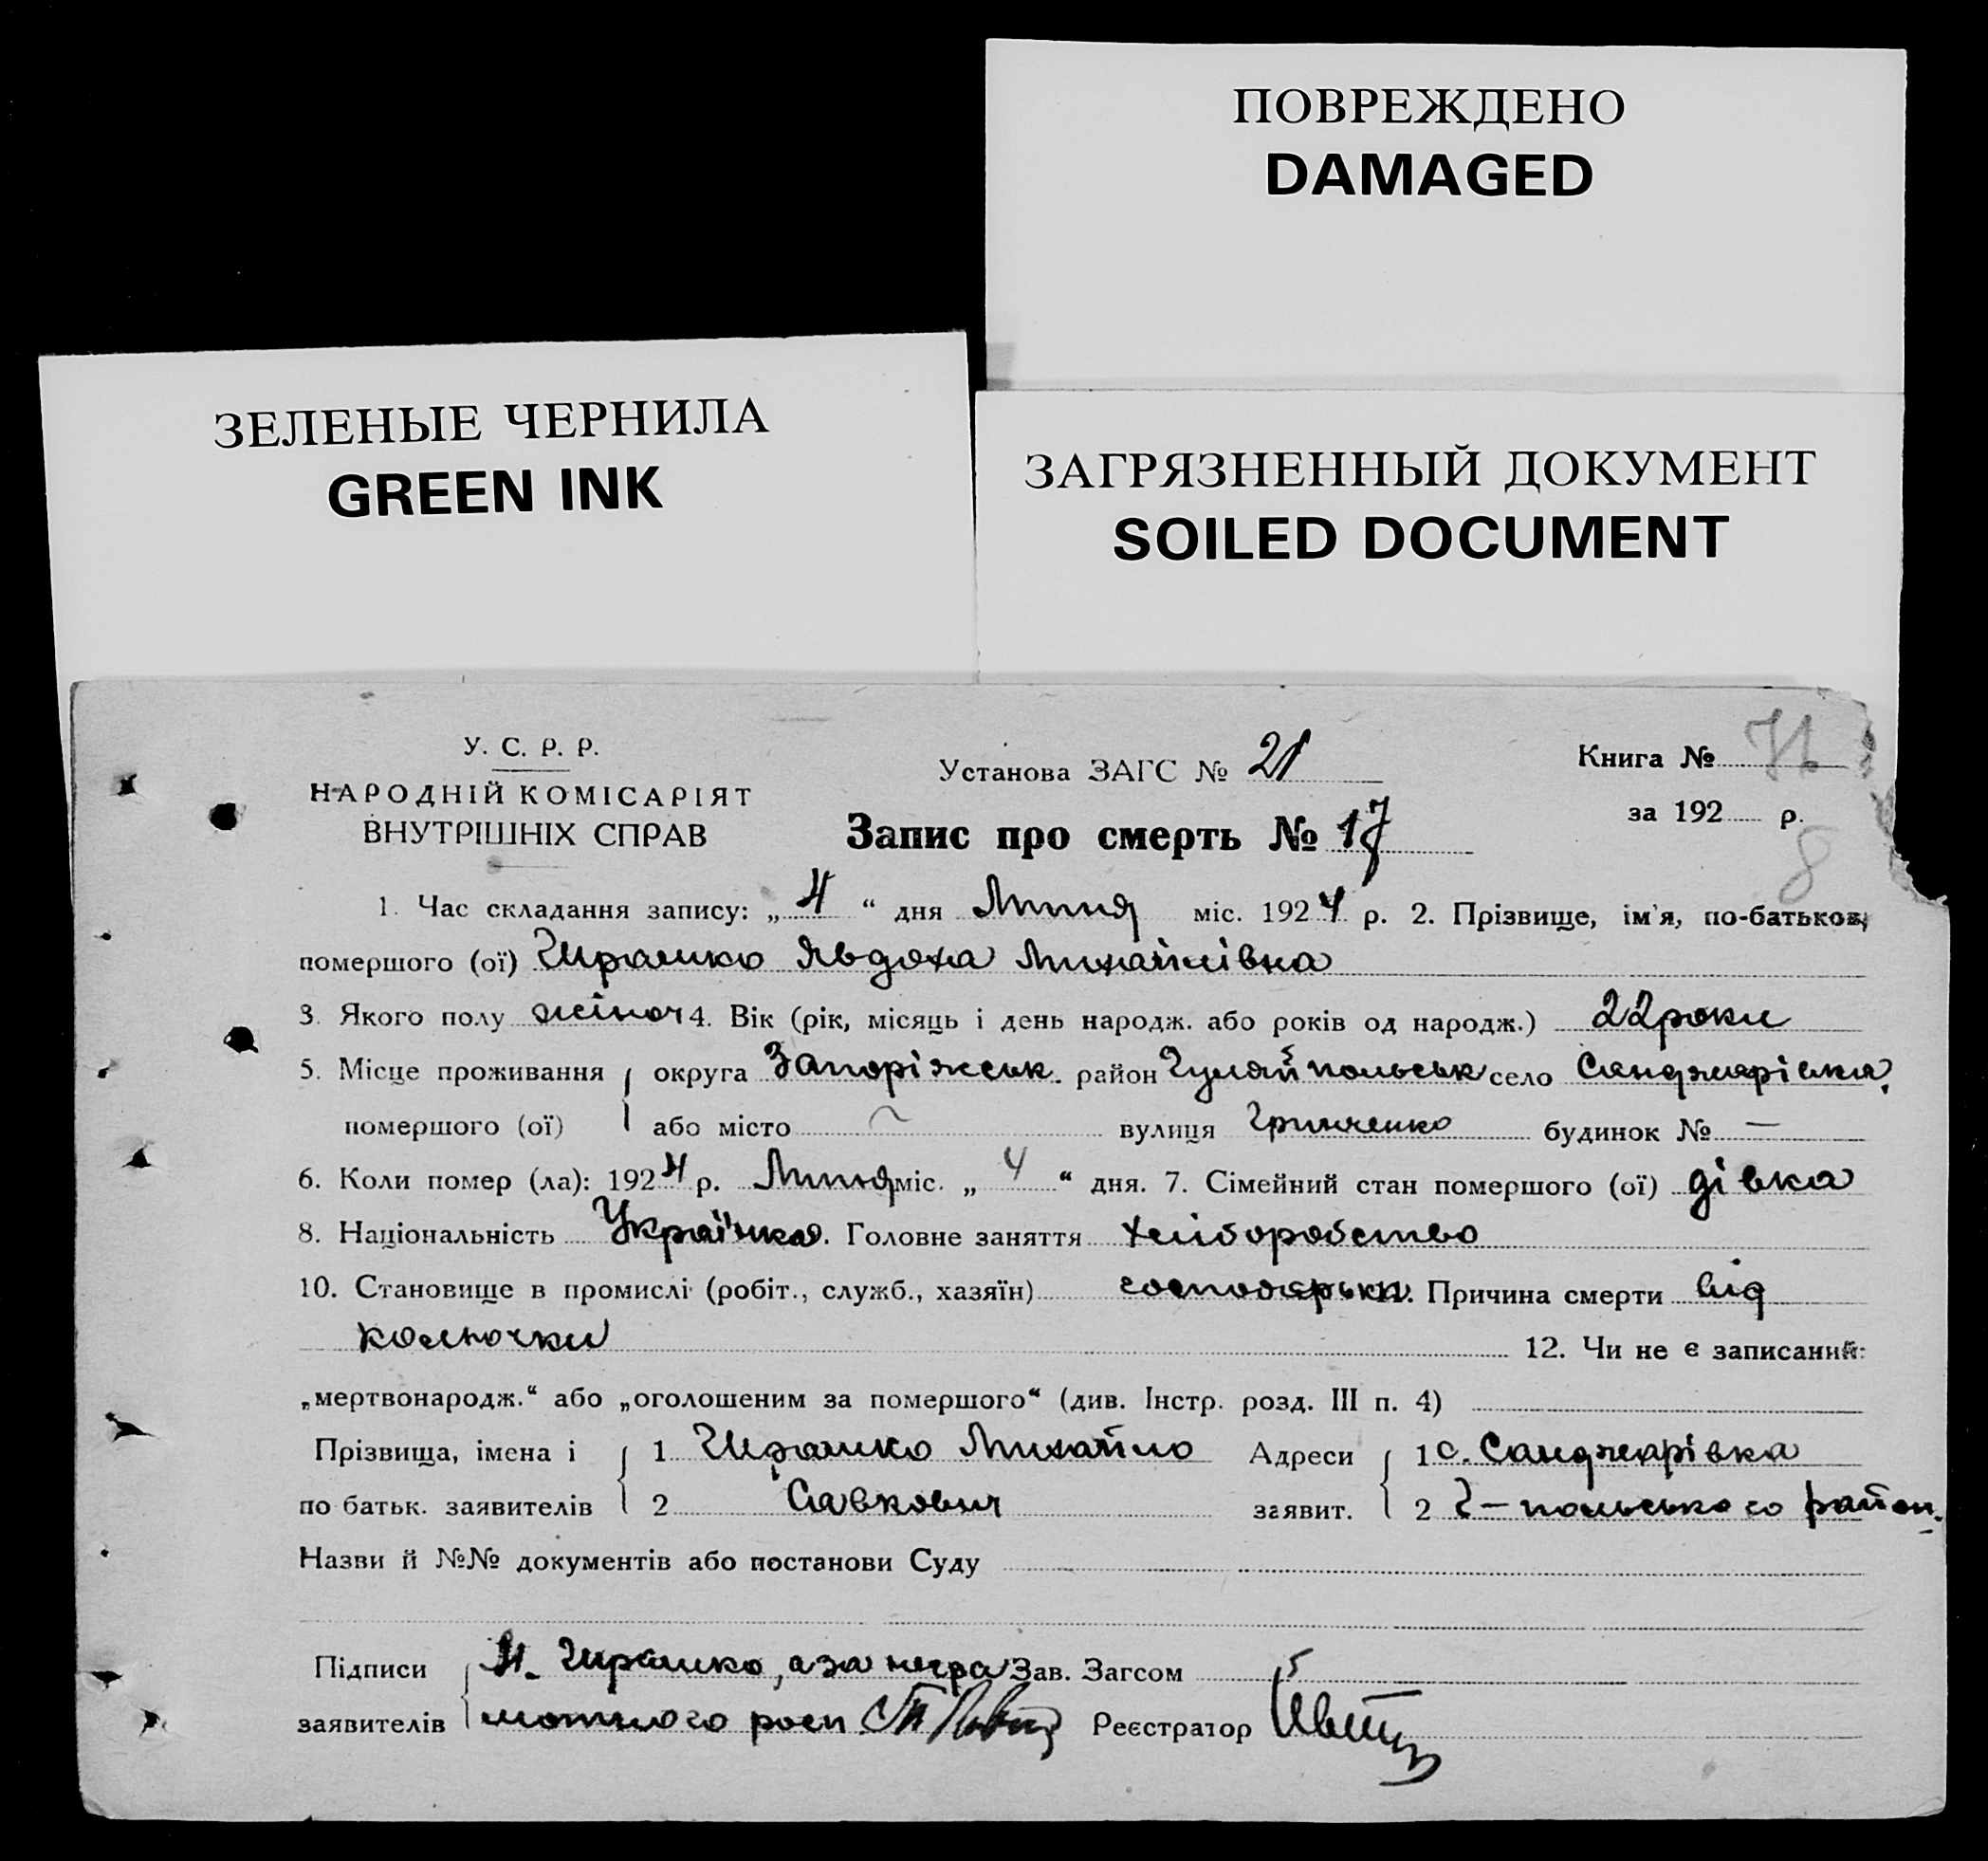 ПОВРЕЖДЕНО
DAMAGED
ЗЕЛЕНЫЕ ЧЕРНИЛА
GREEN INK
ЗАГРЯЗНЕННЫЙ ДОКУМЕНТ
SOILED DOCUMENT
У. С. Р. Р.
НАРОДНІЙ КОМІСАРІЯТ
ВНУТРІШНІХ СПРАВ
Установа ЗАГС № 21
Книга №
за 192 р.
8
Запис про смерть № 17
1. Час складання запису: „ 4 “ дня Липня міс. 1924 р. 2. Прізвище, ім'я, по-батькові
помершого (ої) Гирашко Явдоха Михайлівна
3. Якого полу жіноч 4. Вік (рік, місяць і день народж. або років од народж.) 22 роки
5. Місце проживання округа Запоріжськ. район Гуляйпольськ село Санджарівка.
помершого (ої) або місто вулиця Гринченко будинок № —
6. Коли помер (ла): 1924 р. Липня міс. „ 4 “ дня. 7. Сімейний стан помершого (ої) дівка
8. Національність Українка. Головне заняття хліборобство
10. Становище в промислі (робіт., служб., хазяїн) господарька. Причина смерти від
колючки
12. Чи не є записаний:
„мертвонародж.“ або „оголошеним за помершого“ (див. Інстр. розд. III п. 4)
Прізвища, імена і 1 Гирашко Михайло Адреси 1 с. Санджарівка
по батьк. заявителів 2 Савкович заявит. 2 Г-польського район.
Назви й №№ документів або постанови Суду
Підписи М. Гирашко, а за негра Зав. Загсом
заявителів мотного росп. Реєстратор